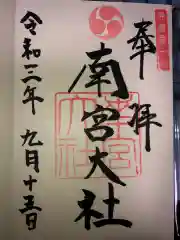 奉拝
南宮大社
南宮大社
令和二年九月十五日